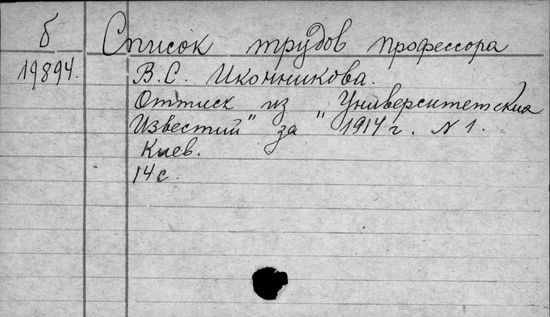 б
Список трудов профессора
19894.
В.С. Иконникова.
Оттиск из "Университетских
Известий" за "1914 г. N 1.
Киев.
14 с.